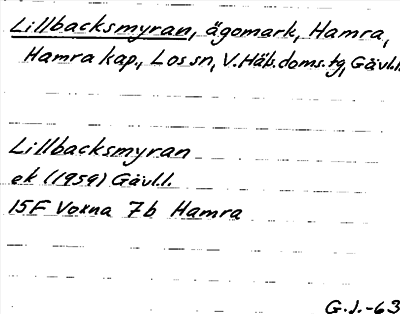 Lillbacksmyran, ägomark, Hamra,
Hamra kap., Los sn, V. Häls. doms. tg, Gävl.l.
Lillbacksmyran
ek (1959) Gävl.l.
15F Voxna 7b Hamra
G.J.-63